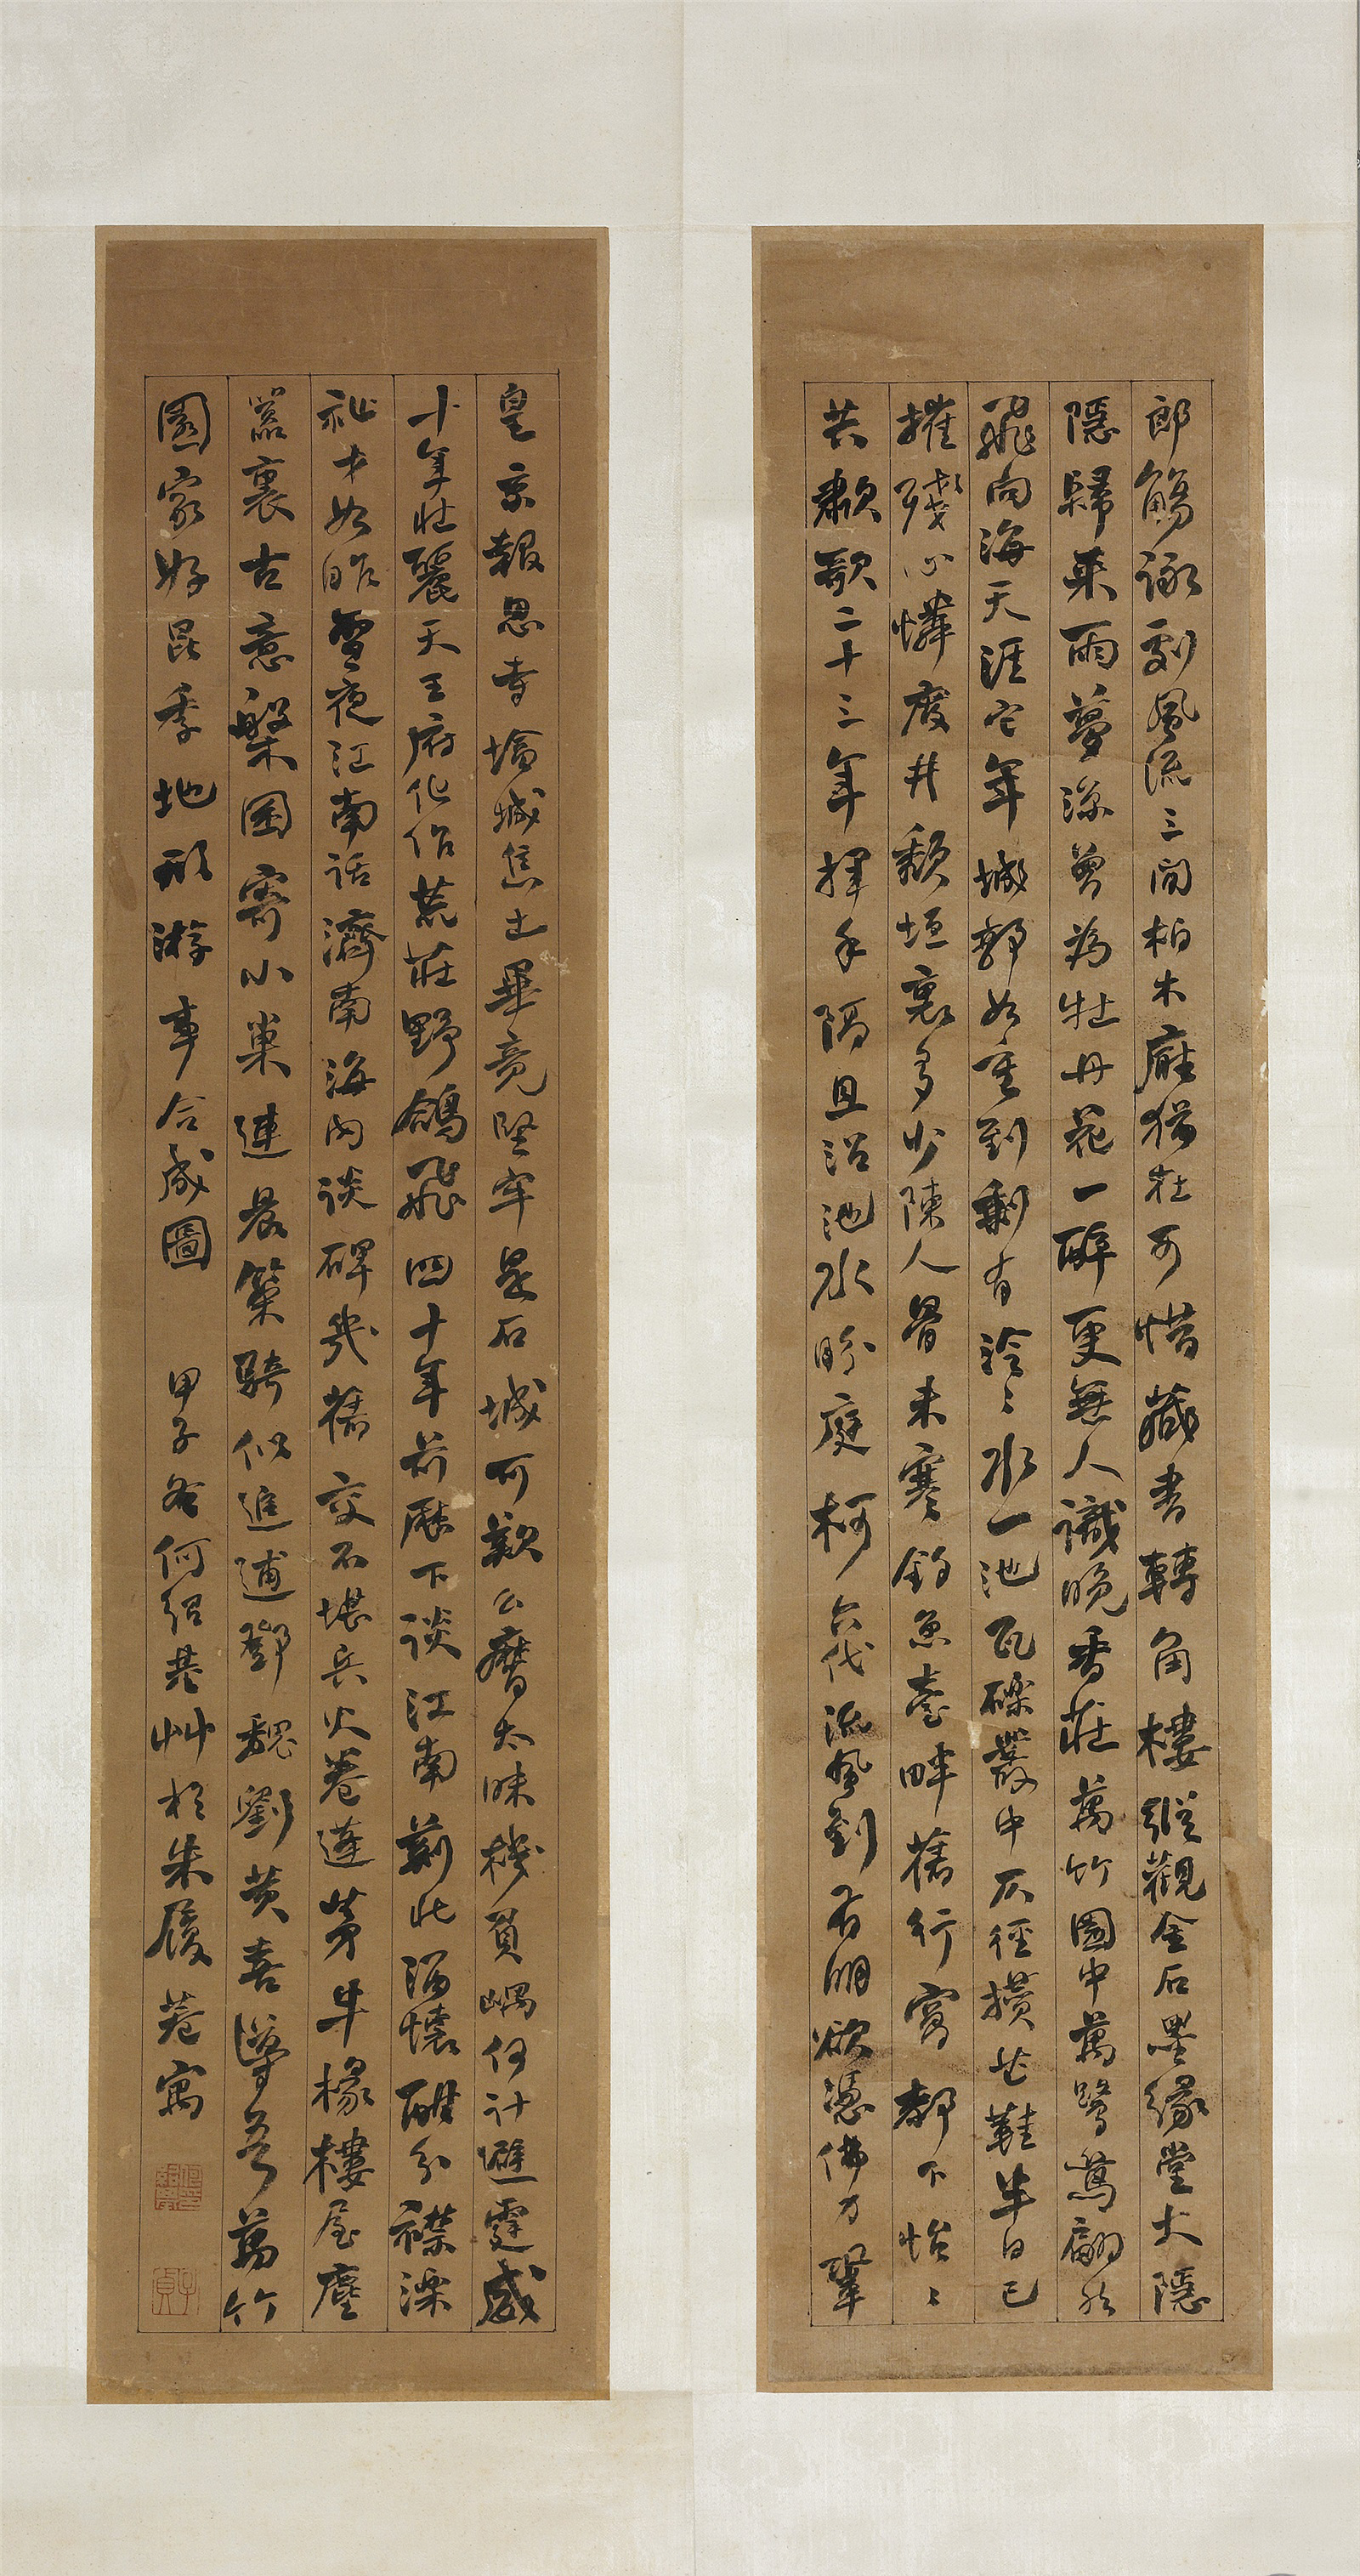 郎觴詠劇風流三間柏木廳猶在可惜藏書轉角樓縱觀金石墨緣堂大隱
隱歸來雨夢涼曾為牡丹花一醉更無人識晚香莊萬竹園中萬鷺鶿翩然
飛向海天涯它年城郭如重到剩有泠〻水一池瓦礫叢中仄徑橫芒鞋半日已
摧殘心憐廢井頹垣裏多少陳人骨未寒釣魚臺畔舊行窩都下怡〻
共歗歌二十三年揮手隔且沿池水盼庭柯六代流風到有明欲憑佛力鞏
皇京報恩寺塔城焦土畢竟堅牢是石城可歎公麿太昧機負嵎何計避霆威
十年壯麗天王府化作荒莊野鴿飛四十年前歷下談江南莂此酒懷酣分襟深
祉才如昨雪夜江南話濟南海內談碑幾舊交不堪兵火卷蓬茅半椽樓屋塵
囂裏古意槃囷寄小巢連晨策騎似追逋鄧魏劉黃喜導吾萬竹
園家好昆季地形游事合成圖 甲子冬何紹基艸於朱履巷寓
子貞